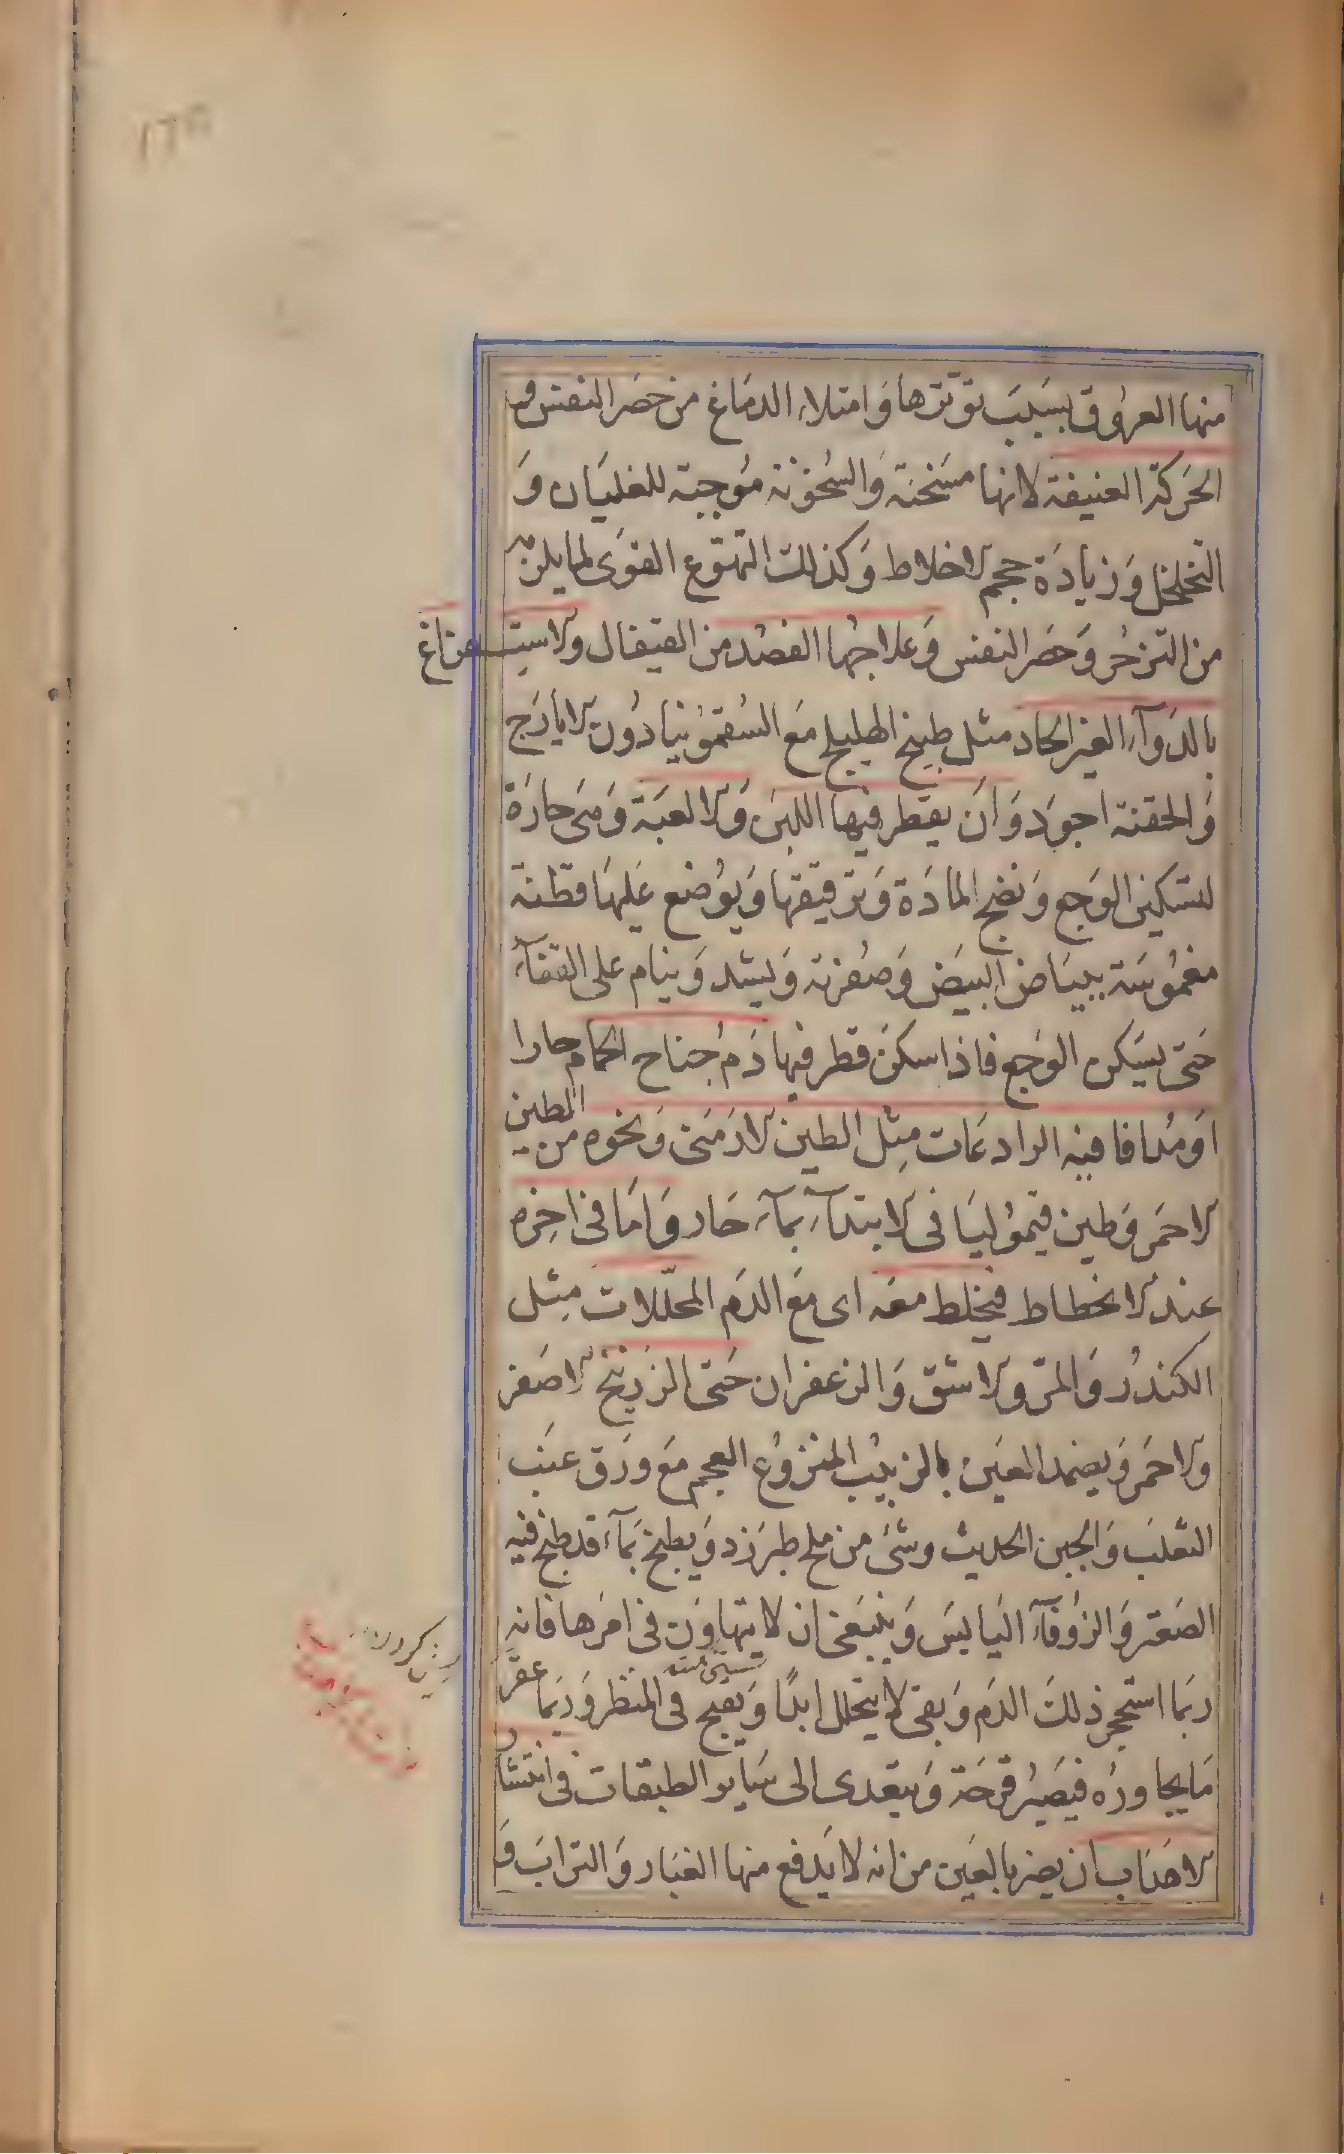 منها العروق بسبب توترها وامتلاء الدماغ من حصر النفس فيه
الحركة العنيفة لانها مسخنة والسخونة موجبة للغليان و
التخلخل وزيادة حجم الاخلاط وكذلك التهوع القوى لما يلزمه
من التزحر وحصر النفس وعلاجها الفصد من القيفال والاستفراغ
بالدوآء الغير الحاد مثل طبيخ الهليلج مع السقمونيا دون الايارج
والحقنة اجود وان يقطر فيها اللبن والالعبة وهى حارة
لتسكين الوجع ونضج المادة وترقيقها ويوضع عليها قطنة
مغموسة ببياض البيض وصفرته ويشد وينام على القفآء
حتى يسكن الوجع فاذا سكن قطر فيها دم جناح الحمام حارا
او مدافا فيه الرادعات مثل الطين الارمنى ونحوه من الطين
الاحمر وطين قيموليا فى الابتدآء بمآء حار واما فى اخره
عند الانحطاط فيخلط معه اى مع الدم المحللات مثل
الكندر والمر والاشق والزعفران حتى الزرنيخ الاصفر
والاحمر ويضمد العين بالزبيب المنزوع العجم مع ورق عنب
الثعلب والجبن الحديث وشئ من ملح طبرزد ويطبخ بمآء قد طبخ فيه
الصعتر والزوفآء اليابس وينبغى ان لا يتهاون فى امرها فانه
ربما استحجر ذلك الدم وبقى لا يتحلل ابدا ويقبح فى المنظر وربما عقر
ما يجاوره فيصير قرحة ويتعدى الى ساير الطبقات فى انتشار
الاهداب ان يضر بالعين من انه لا يدفع منها الغبار والتراب و